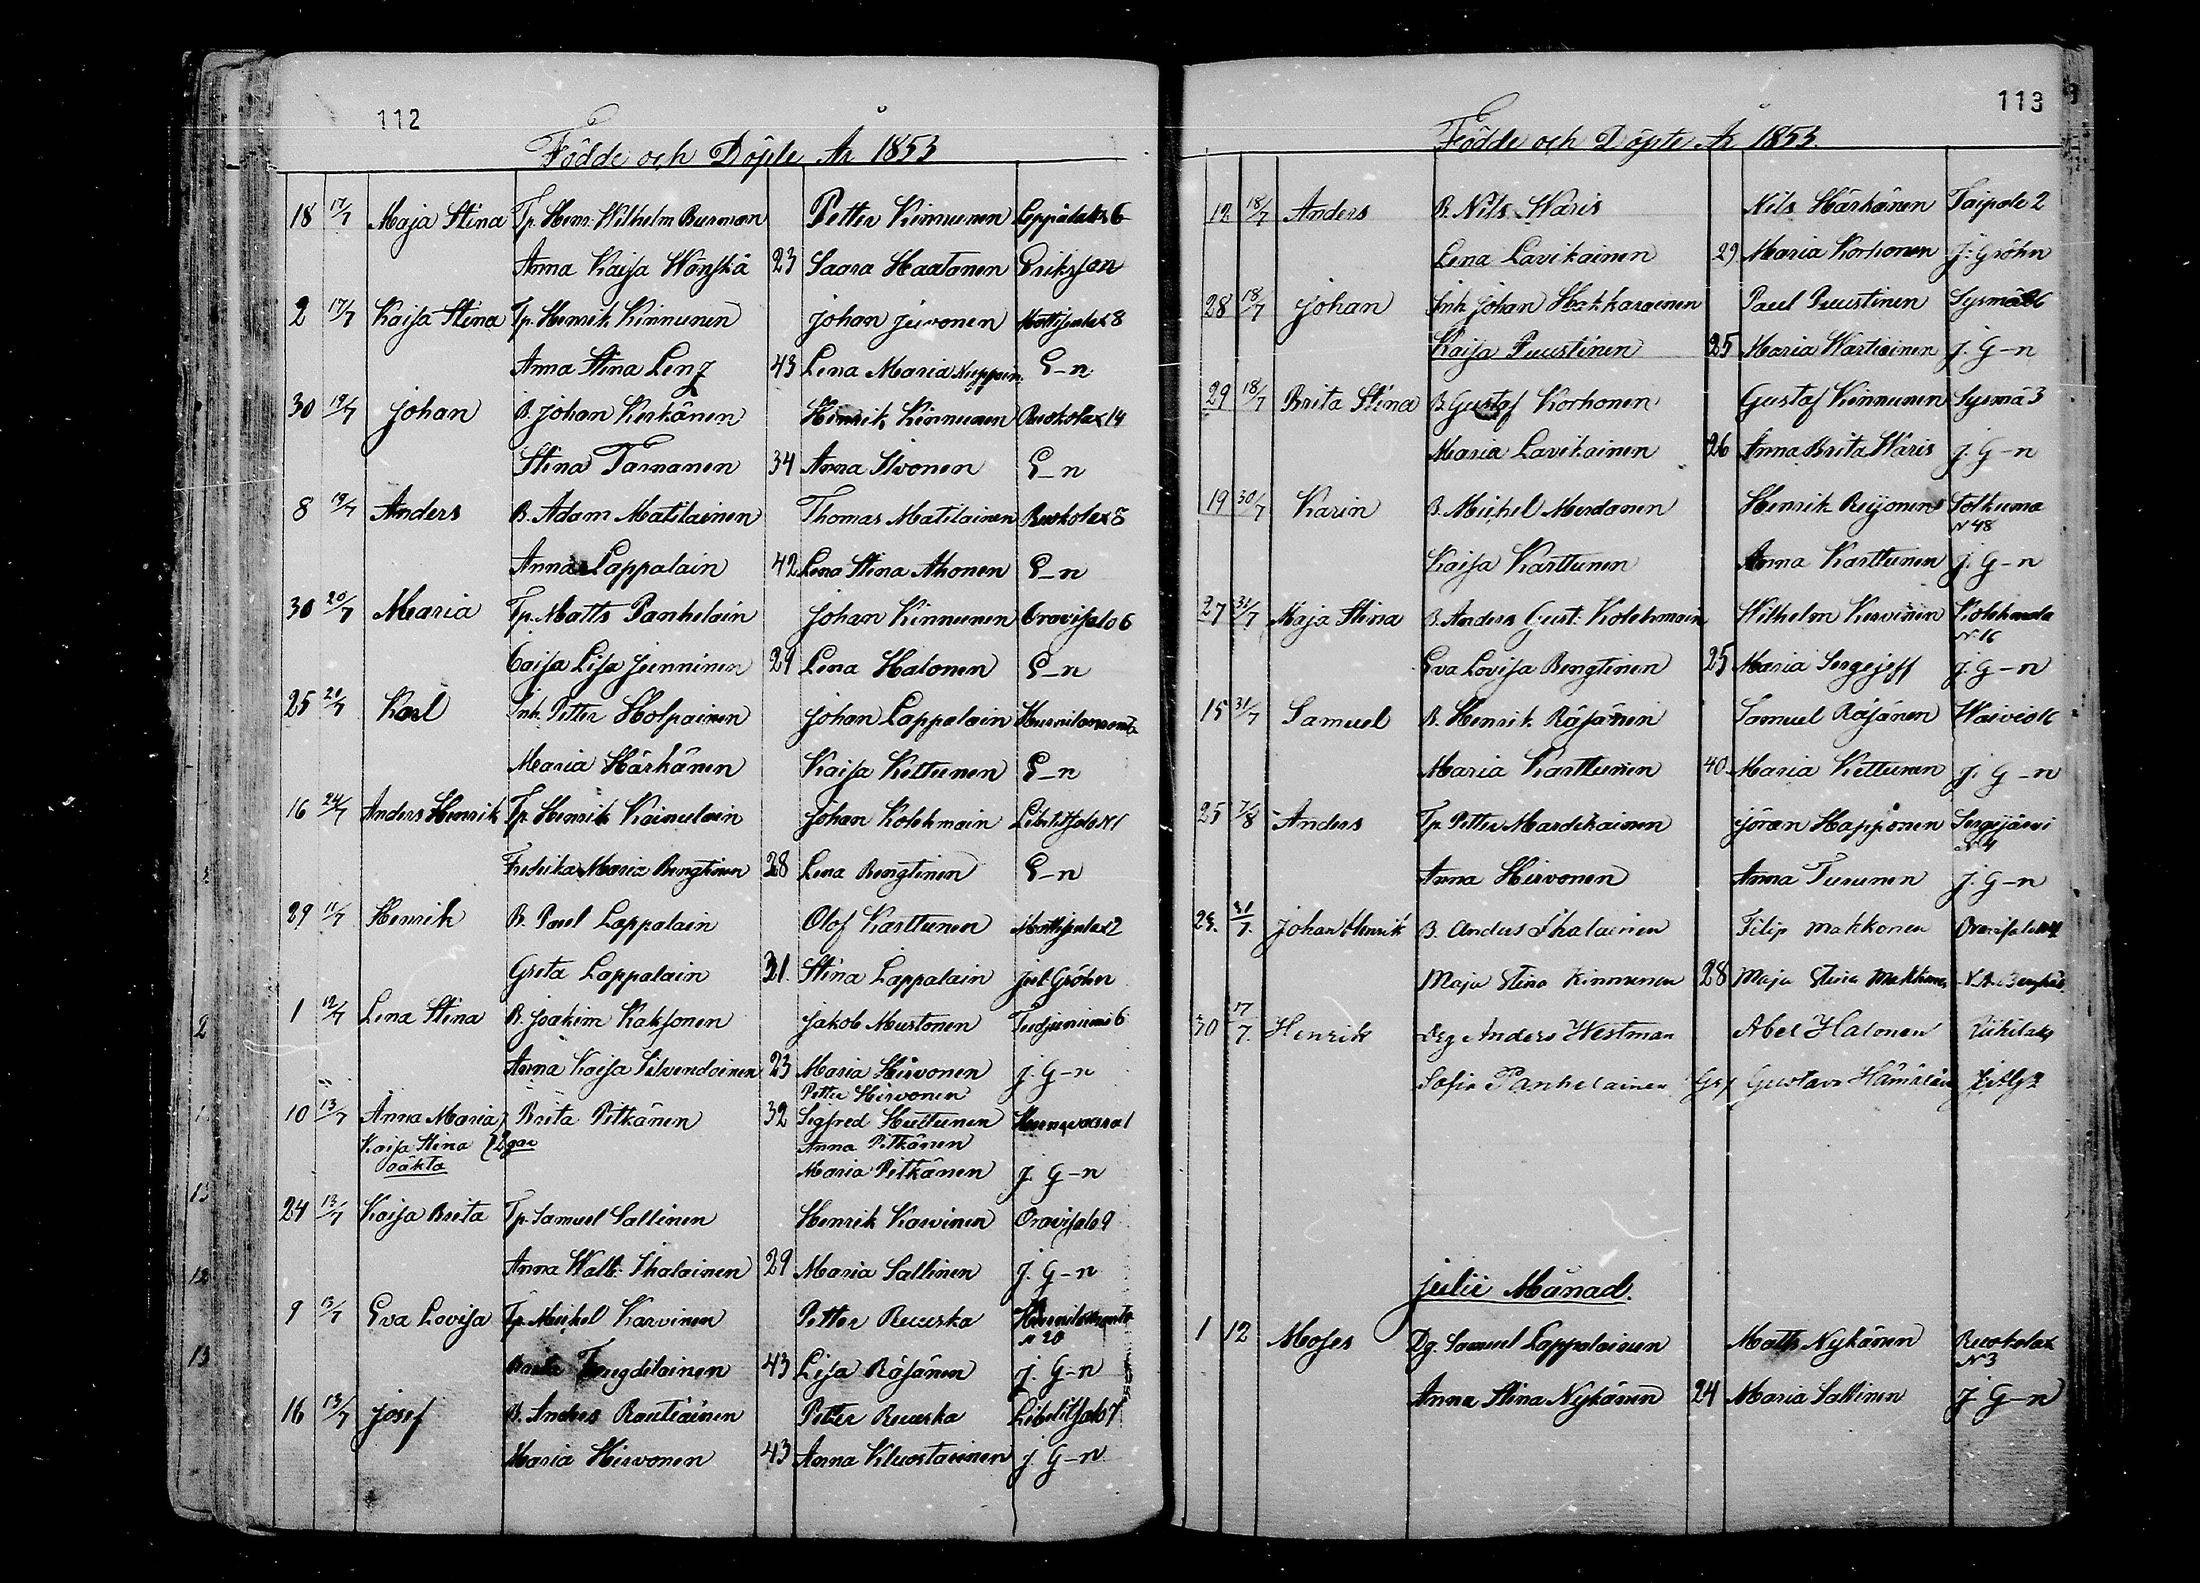 112
Födde och Döpte År 1853
18 17/7 Maja Stina Tp. Henr. Wilhelm Burman Petter Kinnunen Leppälaks 6
Anna Kaisa Wänskä 23 Saara Haatanen Eriksson
2 17/7 Kaisa Stina Tp. Henrik Kinnunen Johan Juvonen 8
Anna Stina Lenz 43 Lena Maria E-n
30 19/7 Johan B. Johan Kerkänen Henrik Kinnunen Ruokolax 14
Stina Tarnanen 34 Anna Ilvonen E-n
8 19/7 Anders B. Adam Matilainen Thomas Matilainen Ruokolax 8
Anna Lappalain 42 Lena Stina Ahonen E-n
30 20/7 Maria Tp. Matts Panhelain Johan Kinnunen Oravisalo 6
Caisa Lisa Junninen 29 Lena Halonen E-n
25 21/7 Karl Inh. Petter Holpainen Johan Lappalain
Maria Härkänen Kaisa Kettunen E-n
16 24/7 Anders Henrik Tp. Henrik Kainulain Johan Kolehmain
Fredrika Maria Bengtinen 28 Lena Bengtinen E-n
29 11/7 Henrik B. Paul Lappalain Olof Karttunen 2
Greta Lappalain 31. Stina Lappalain Joel Gröhn
1 12/7 Lena Stina B. Joakim Kaksonen Jakob Mustonen 6
Anna Kaisa Silvendoinen 23 Maria Hirvonen J. G-n
Petter Hirvonen
10 13/7 Anna Maria Brita Pitkänen 32 Sigfred Huttunen
Kaisa Stina Anna Pitkänen
oäkta Maria Pitkänen J. G-n
24 13/7 Kaisa Brita Tp. Samuel Sallinen Henrik Karvinen Oravisalo 9
Anna Walb. Ihalainen 29 Maria Sallinen J. G-n
9 13/7 Eva Lovisa Tp. Mickel Karvinen Petter Ruuska
N 20
43 Lisa Räsänen J. G-n
16 13/7 Josef B. Anders Rautiainen Petter Ruuska Libelitsalo 7
Maria Hirvonen 43 Anna Kluostarinen J. G-n
113
Födde och Döpte År 1853.
12 18/7 Anders B. Nils Waris Nils Härkänen Taipale 2
Lena Lavikainen 29 Maria Korhonen J. Gröhn
28 18/7 Johan Inh. Johan Hakkarainen Paul Puustinen Sysmä 26
Kaisa Puustinen 25 Maria Wartiainen J. G-n
29 18/7 Brita Stina B. Gustaf Korhonen Gustaf Kinnunen Sysmä 3
Maria Lavikainen 26 Anna Brita Waris J. G-n
19 30/7 Karin B. Mickel Murdonen Henrik Reijonen Tolkuma
N 48
Kaisa Karttunen Anna Karttunen J. G-n
27 31/7 Maja Stina B. Anders Gust. Kolehmain Wilhelm Kervinen
N 16
Eva Lovisa Bengtinen 25 Maria Sergejeff J. G-n
15 31/7 Samuel B. Henrik Räsänen Samuel Räsänen Waivio 16
Maria Karttunen 40 Maria Kettunen J. G-n
25 7/8 Anders Tp. Petter Mardikainen Jöran Happonen Sergijärvi
N 4
Anna Hirvonen Anna Turunen J. G-n
23. 31/7. Johan Henrik B. Anders Ihalainen Filip Makkonen
Maja Stina Kinnunen 28 Maja Stina Makkonen
30 17/7. Henrik Drg Anders Westman Abel Halonen
Sofia Panhelainen Gustava
Julii Månad.
1 12 Moses Dg. Samuel Lappalainen Matts Nykänen Ruokolax
N 3
Anna Stina Nykänen 24 Maria Sallinen J. G-n